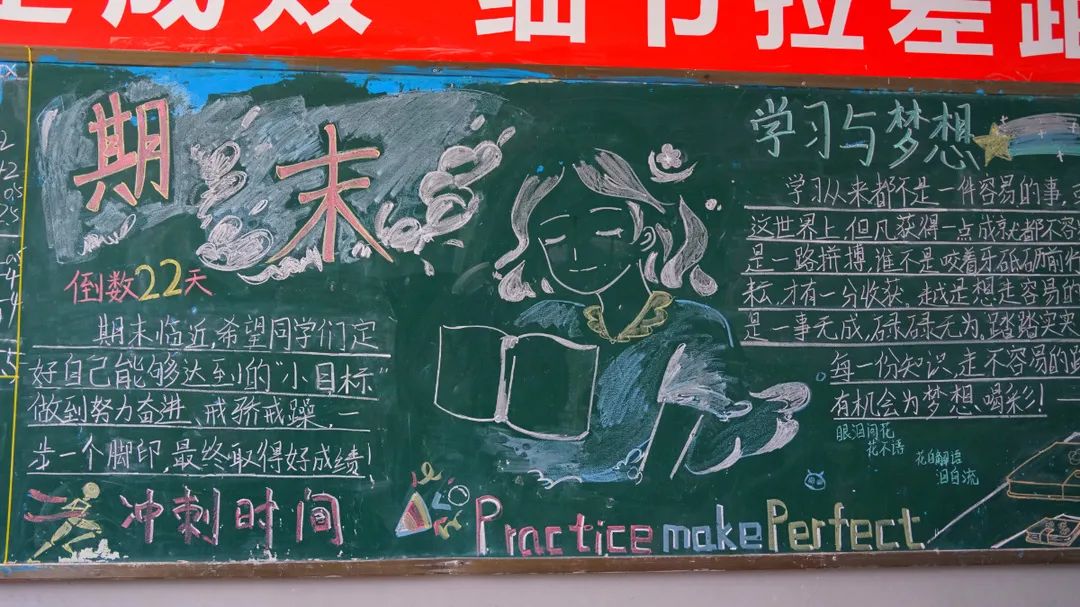 成效 细节拉差距
期末
倒数22天
期末临近,希望同学们定
好自己能够达到的"小目标"
做到努力奋进、戒骄戒躁,一
步一个脚印,最终取得好成绩!
冲刺时间
Practice make Perfect
学习与梦想
学习从来都不是一件容易的事,
这世界上,但凡获得一点成就都不容
是一路拼搏,谁不是咬着牙砥砺前行
耘,才有一分收获。越是想走容易的
是一事无成,碌碌无为。踏踏实实
每一份知识,走不容易的路
有机会为梦想喝彩!
眼泪问花
花不语
花自解语
泪自流